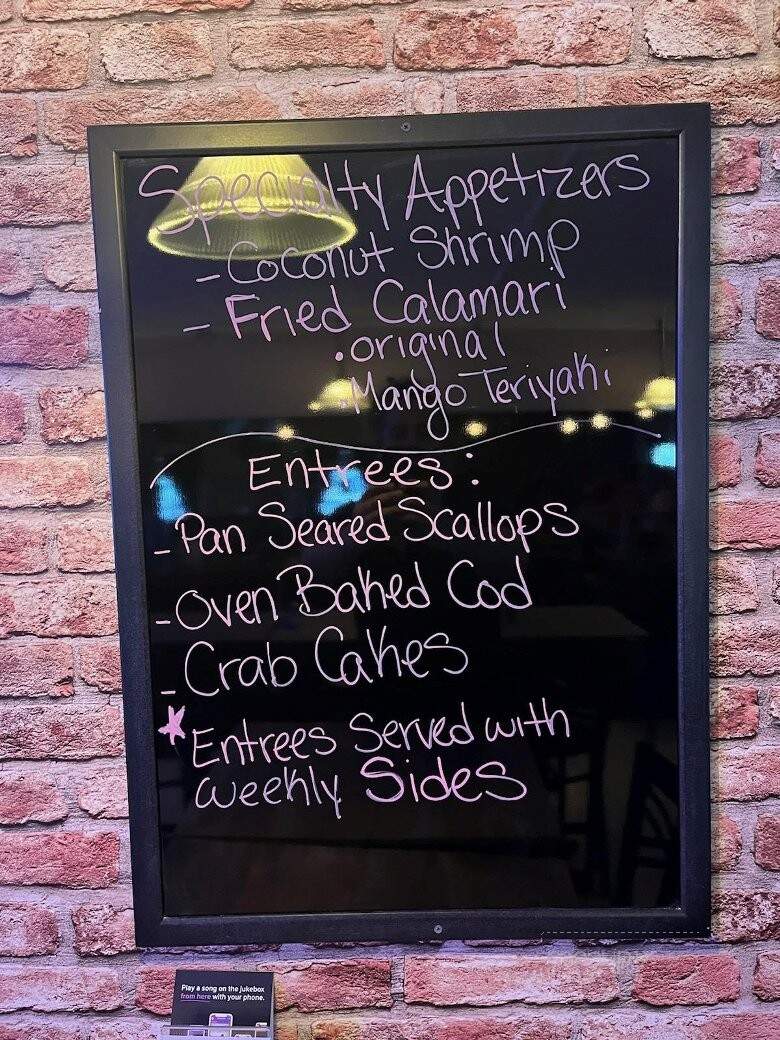 Specialty Appetizers
- Coconut Shrimp
- Fried Calamari
• original
• Mango Teriyaki
Entrees:
- Pan Seared Scallops
- Oven Baked Cod
- Crab Cakes
* Entrees Served with
weekly Sides
Play a song on the jukebox
from here with your phone.